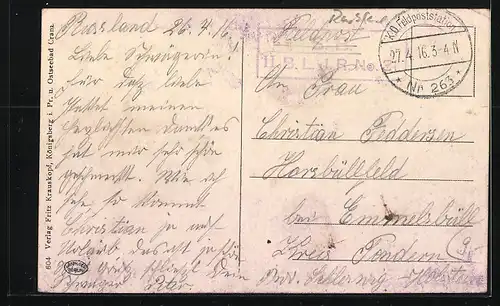 Russland 26.4.16.
Liebe Schwägerin!
für das liebe
Packet meinen
herzlichsten Dank es
hat mir sehr schön
geschmeckt. Wie ich
sehe so kommt
Christian ja auf
Urlaub das ist ja schön
Dein
Schwager
Feldpost
II. B. L. J. R. No.
K.D. Feldpoststation
27.4.16.3-4N
* Nr 263 *
An Frau
Christian Peddersen
Horsbüllfeld
bei Emmelsbüll
Kreis Tondern
Prov. Schleswig-Holstein
604 Verlag Fritz Krauskopf, Königsberg i. Pr. u. Ostseebad Cranz.